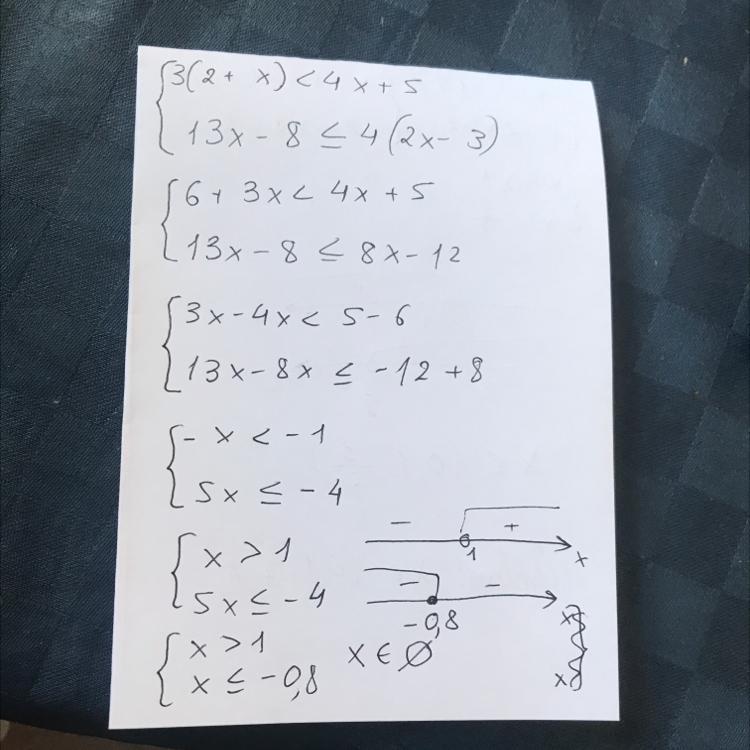 {3(2 + x) < 4x + 5
13x - 8 ≤ 4(2x - 3)
{6 + 3x < 4x + 5
13x - 8 ≤ 8x - 12
{3x - 4x < 5 - 6
13x - 8x ≤ -12 + 8
{- x < -1
5x ≤ -4
{x > 1
5x ≤ -4
{x > 1
x ≤ -0,8
x ∈ ∅
- +
1 x
- -
-0,8